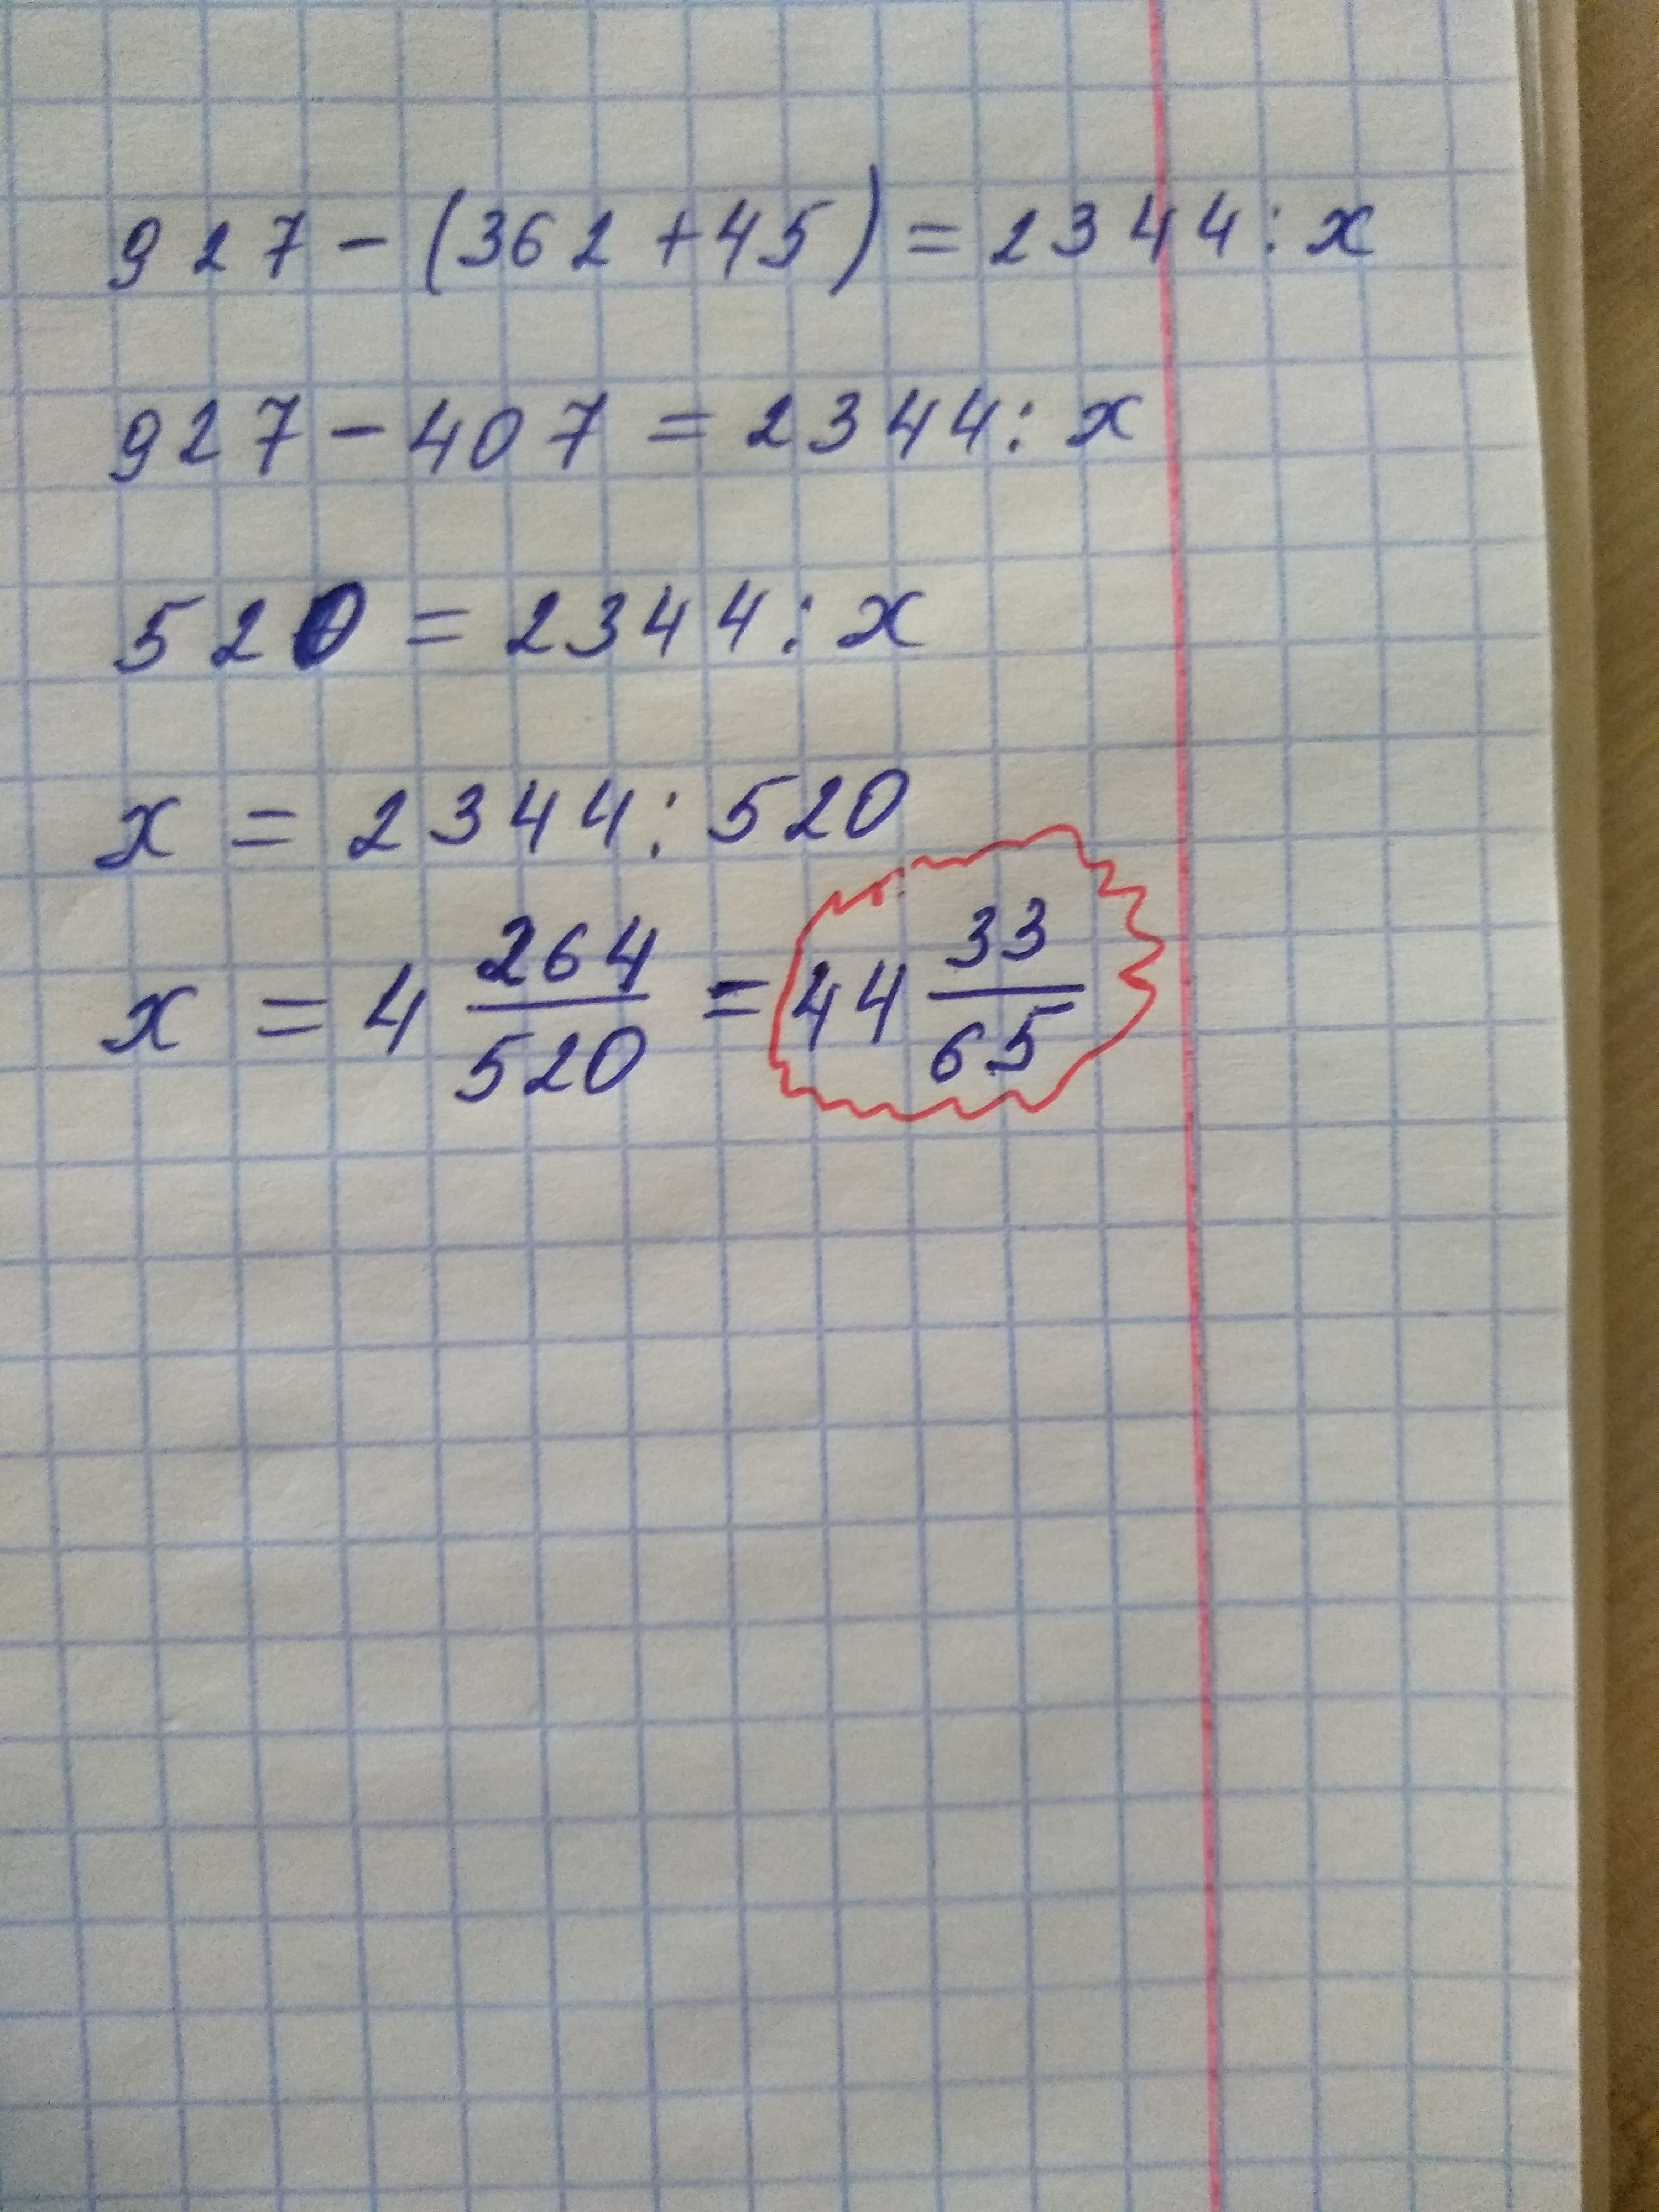 927-(362+45)=2344:x
927-407=2344:x
520=2344:x
x=2344:520
x=4 264/520=44 33/65